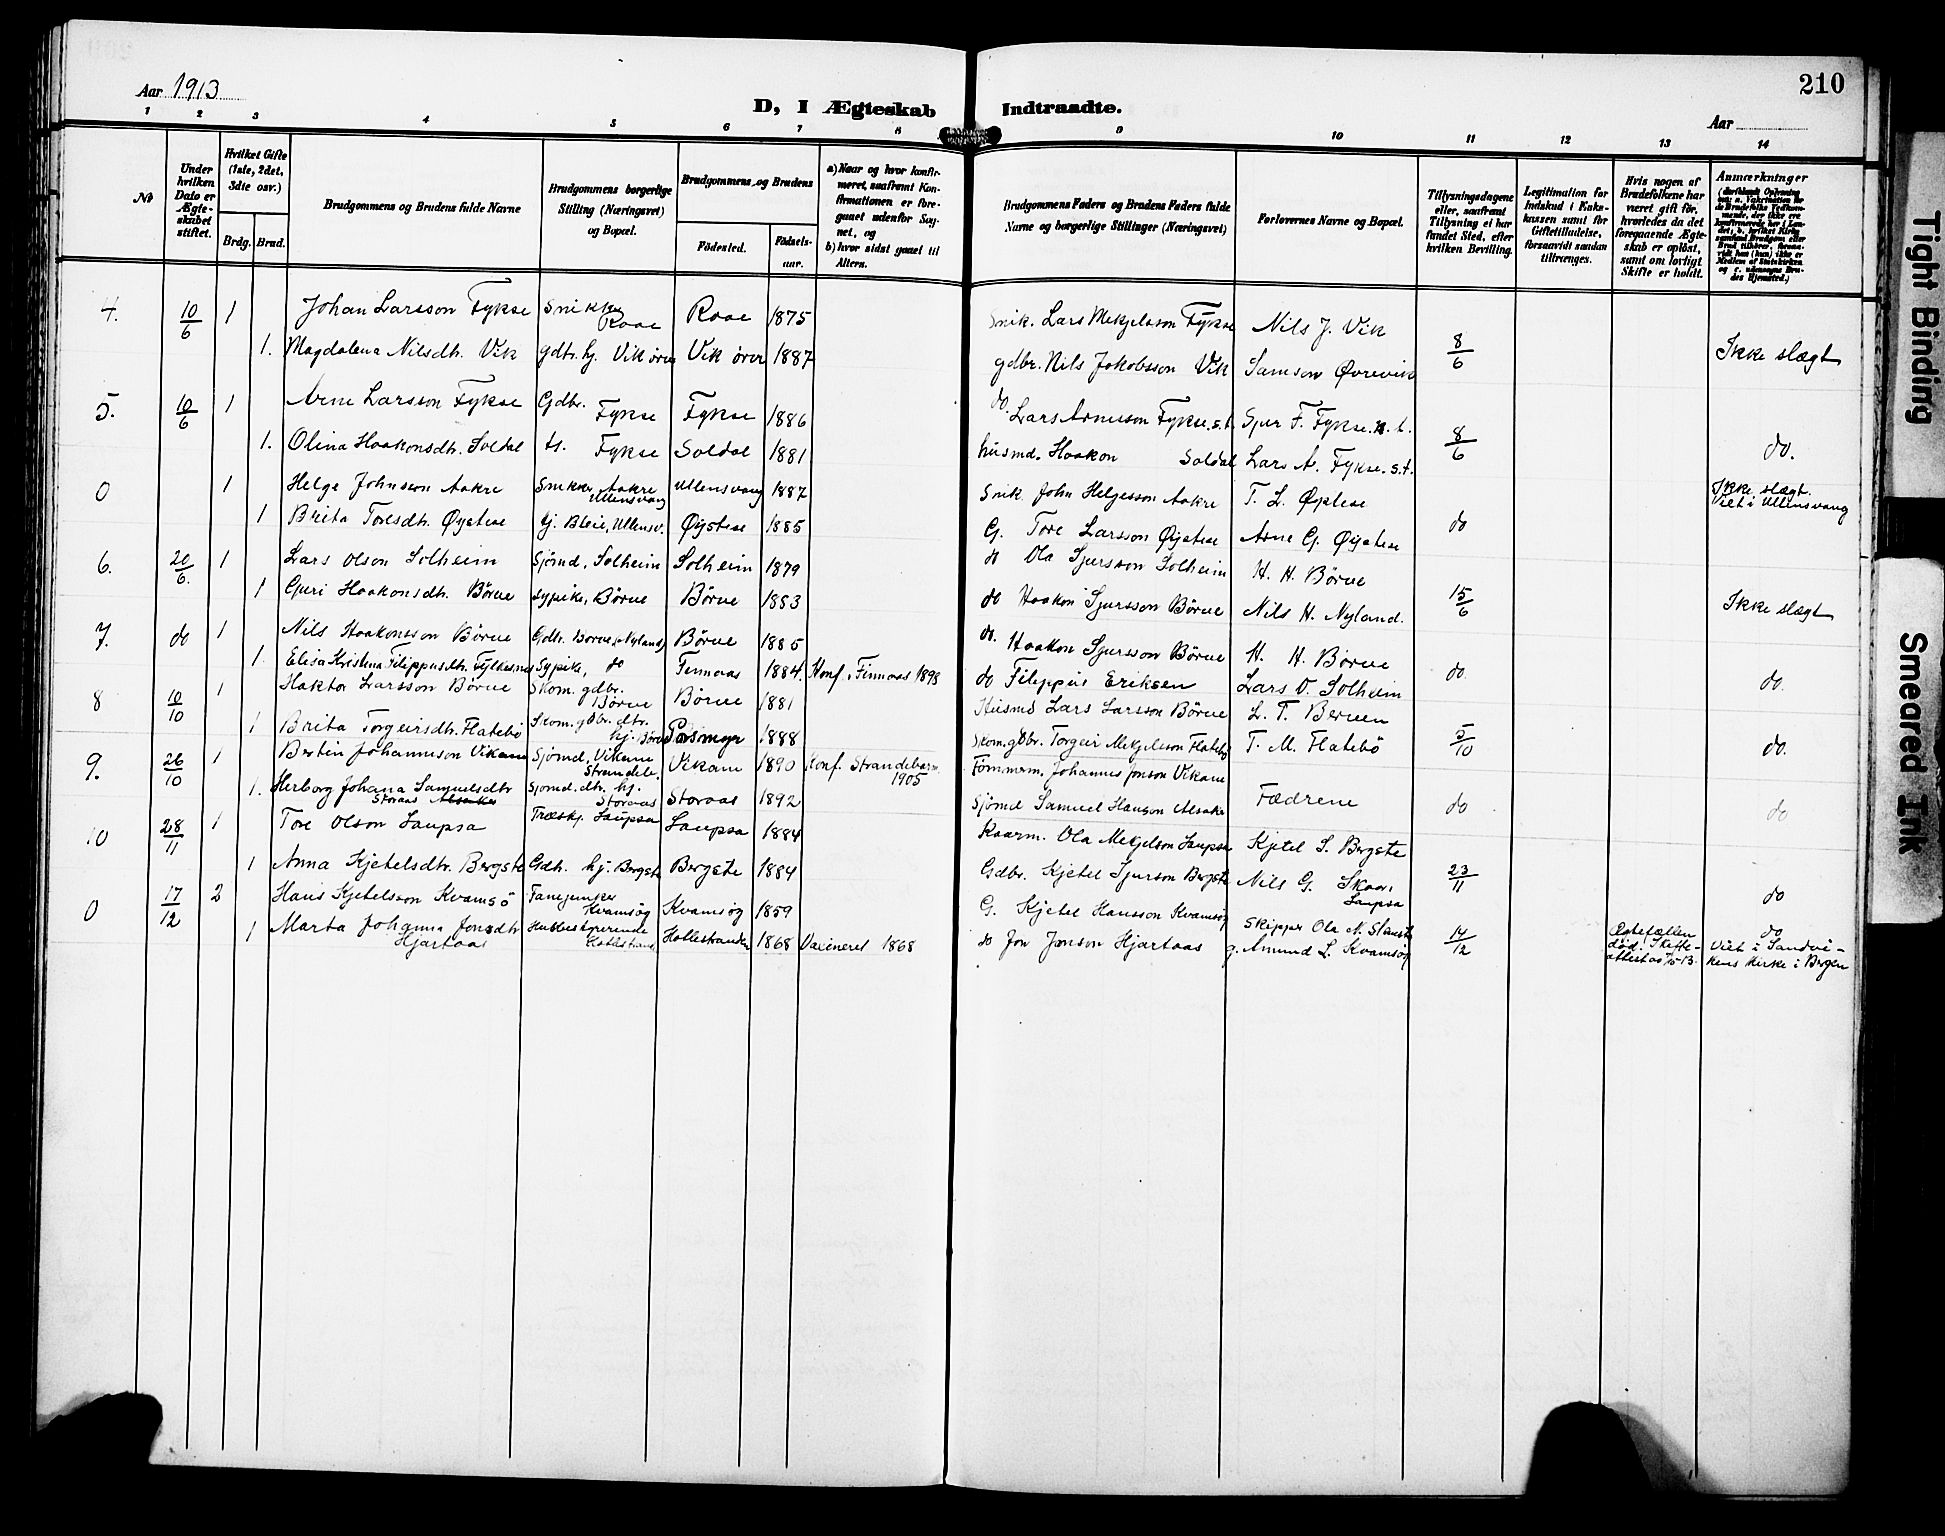 210
Aar 1913
D, I Ægteskab Indtraadte.
Aar
1 2 3 4 5 6 7 8 9 10 11 12 13 14
№
Under hvilken Dato er Ægteskabet stiftet.
Hvilket Gifte (1ste, 2det, 3die osv.)
Brdg. Brud.
Brudgommens og Brudens fulde Navne
Brudgommens borgerlige Stilling (Næringsvei) og Bopæl.
Brudgommens og Brudens
Fødested. Fødselsaar.
a) Naar og hvor konfirmeret, saafremt Konfirmationen er foregaaet udenfor Sognet, og
b) hvor sidst gaaet til Alters.
Brudgommens Faders og Brudens Faders fulde Navne og borgerlige Stillinger (Næringsvei)
Forlovernes Navne og Bopæl.
Tillysningsdagene eller, saafremt Tillysning ei har fundet Sted, efter hvilken Bevilling.
Legitimation for Indskud i Enkekassen samt for Giftetilladelse, forsaavidt saadan tiltrænges.
Hvis nogen af Brudefolkene har været gift før, hvorledes da det foregaaende Ægteskab er opløst, samt om lovligt Skifte er holdt.
Anmærkninger
4. 10/6 1 Johan Larsson Fykse Snikker Raae Raae 1875 Snik. Lars Mekjelsson Fykse Nils J. Vik
1. Magdalena Nilsdtr. Vik gdtr. hj. Vik øvre Vik øvre 1887 gdbr. Nils Jakobsson Vik Samson Øvrevik 8/6 Ikke slægt
5. 10/6 1 Arne Larsson Fykse Gdbr. Fykse Fykse 1886 do. Lars Arnesson Fykse. s.t. Sjur F. Fykse. n.t.
1. Olina Haakonsdtr. Soldal ts. Fykse Soldal 1881 husmd. Haakon Soldal Lars A. Fykse. s.t. 8/6 do.
0 1 Helge Johnsson Aakre Snikker Aakre Ullensvang Ullensvang 1887 Snik. John Helgesson Aakre T. L. Øystese Ikke slægt. Viet i Ullensvang
1 Brita Toresdtr. Øystese tj. Bleie, Ullensv. Øystese 1885 G. Tore Larsson Øystese Arne G. Øystese do
6. 20/6. 1 Lars Olson Solheim Sjømd, Solheim Solheim 1879 do Ola Sjursson Solheim H. H. Børve
1 Guri Haakonsdtr. Børve sypike, Børve Børve 1883 do Haakon Sjursson Børve Nils H. Nyland. 15/6 Ikke slægt
7. do 1 Nils Haakonsson Børve Gdbr. Børve, Nyland Børve 1885 do. Haakon Sjursson Børve H. H. Børve
1. Elisa Kristina Filippusdtr. Fylkesnes Sypike, do Finnaas 1884. Konf. i Finnaas 1898 do Filippus Eriksen Lars O. Solheim do. do.
8 10/10 1 Haktor Larsson Børve Skom. gdbr. Børve Børve 1881 Husmd Lars Larsson Børve L. T. Berven
1 Brita Torgeirsdtr. Flatebø Skom. gdbr. dtr. hj. Børve 1888 Skom. gdbr. Torgeir Mekjelsson Flatebø T. M. Flatebø 5/10 do.
9. 26/10 1 Bertin Johannesson Vikane Sjømd, Vikane Strandeb. Vikane 1890 Konf. Strandebarm 1905 Tømmerm. Johannes Jonson Vikane
1. Herborg Johana Samuelsdtr Storaas Sjomd. dtr. hj. Storaas Storaas 1892 Sjømd Samuel Hanson Alsaker Fædrene do do
10 28/11 1 Tore Olson Laupsa Træskj. Laupsa Laupsa 1884 Kaarm. Ola Mekjelson Laupsa Kjetel S. Bergste
1 Anna Kjetelsdtr. Bergste Gdtr. hj. Bergste Bergste 1884 Gdbr. Kjetel Sjurson Bergste Nils G. Skaar, Laupsa 23/11 do
0 17/12 2 Hans Kjetelsson Kvamsø Fanejunker Kvamsøy Kvamsøy 1859 G. Kjetel Hansson Kvamsøy Skipper Ola N.
1 Marta Johanna Jonsdtr Hjartaas Husbestyrerinde Hallestranden 1868 Vaxineret 1868 do Jon Jonson Hjartaas g. Amund L. Kvamsøy 14/12 Ægtefællen død. Skifteattest av 7/5-13. do Viet i Sandvikens kirke i Bergen
Tight Binding
Smeared Ink